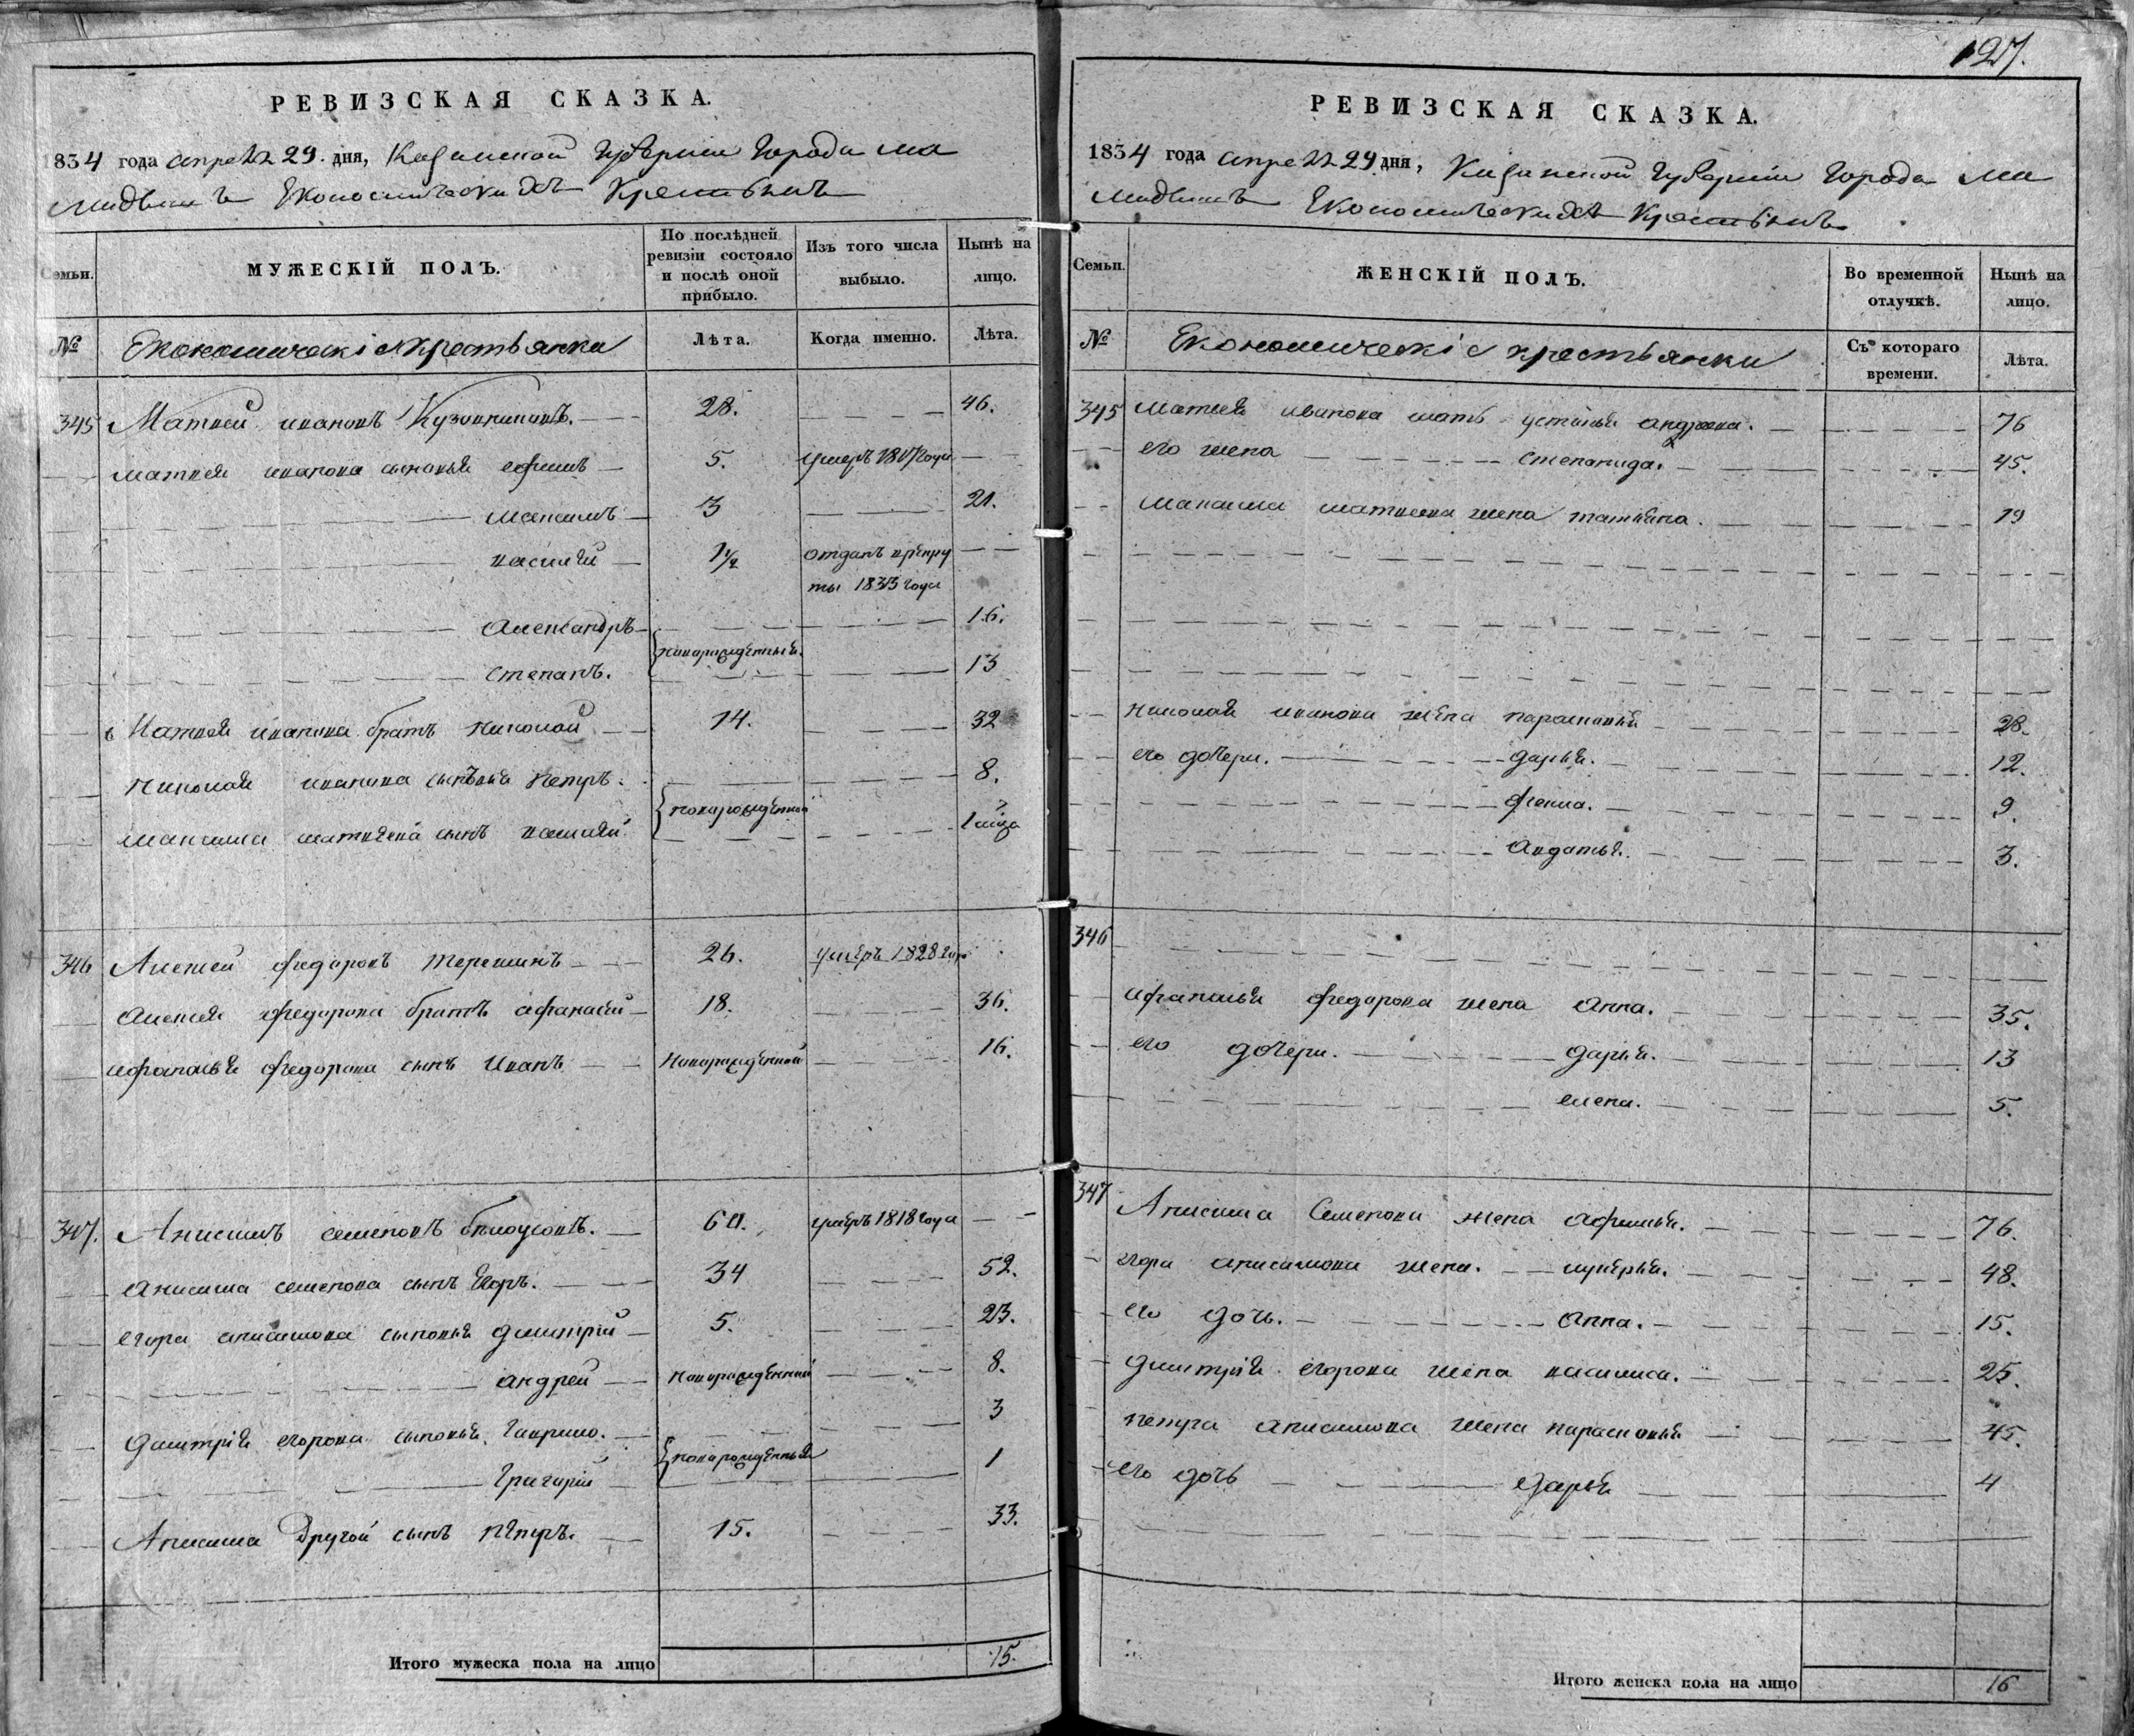 127.
РЕВИЗСКАЯ СКАЗКА.
1834 года апреля 29. дня, Казанской Губернии Города Ма
мадышъ Економическихъ Крестьянъ
Семьи.
МУЖЕСКІЙ ПОЛЪ.
По послѣдней ревизіи состояло и послѣ оной прибыло.
Изъ того числа выбыло.
Нынѣ на лицо.
№
Економическіе крестьянки
Лѣта.
Когда именно.
Лѣта.
345 Матвей ивановъ 28. 46.
матвея иванова сыновья ефимъ 5. умеръ года
максимъ 3 21.
василей 1/2 отданъ врекру
ты 1833 года
александръ 16.
новорожденныя.
степанъ. 13
Матвея иванова братъ николай 14. 32
николая иванова сыновья петръ. 8.
новорожденной
максима матвеева сынъ василей 1 мца
346 Алексей федоровъ терешинъ 26. умеръ 1828 года
алексея федорова братъ афанасий 18. 36.
афанасья федорова сынъ иванъ новорожденной 16.
347. Анисимъ семеновъ белоусовъ. 60. умеръ 1818 года
анисима семенова сынъ Егоръ. 34 52.
егора анисимова сыновья дмитрій 5. 23.
андрей новорожденной 8.
дмитрія егорова сыновья гаврило. 3
новорожденныя
григорій 1
Анисима другой сынъ петръ. 15. 33.
Итого мужеска пола на лицо 15.
РЕВИЗСКАЯ СКАЗКА.
1834 года апреля 29 дня, Казанской Губернии Города Ма
мадышъ Економическихъ Крестьянъ
Семьи.
ЖЕНСКІЙ ПОЛЪ.
Во временной отлучкѣ.
Нынѣ на лицо.
№
Економическіе крестьянки
Съ котораго времени.
Лѣта.
345 матвея иванова мать устинья андреева. 76
его жена степанида. 45.
максима матвеева жена татьяна. 19
николая иванова жена парасковья 28.
его дочери. дарья. 12.
фекла. 9.
авдотья. 3.
346
афанасья федорова жена анна. 35.
его дочери. дарья. 13
елена. 5.
347 Анисима Семенова жена афимья. 76.
егора анисимова жена. лукерья. 48.
его дочь. анна. 15.
дмитрія егорова жена василиса. 25.
петра анисимова жена парасковья 45.
его дочь дарья 4
Итого женска пола на лицо 16